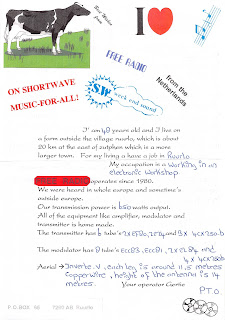 Sex Wind for
I
FREE RADIO
ON SHORTWAVE
MUSIC-FOR-ALL!
SW
week end sound
from the
Netherlands
I' am 48 years old and I live on
a farm outside the village ruurlo, which is about
20 km at the east of zutphen which is a more
larger town. For my living a have a job in Ruurlo
My occupation is Working in an
electronic workshop
FREE RADIO operates since 1980.
We were heard in whole europe and sometime's
outside europe.
Our transmission power is 650 watts output.
All of the equipment like amplifier, modulator and
transmitter is home made.
The transmitter has tube's
The modulator has 8 tube's ECC83, ECC81, 2x EL84 and
4 x 4CX250b
Aerial → Inverte. V, each leg is around 11,5 metres
copperwire, height of the antenna is 14
metres.
Your operator Gertie
P.T.O.
P.O.BOX
7260 AB Ruurlo